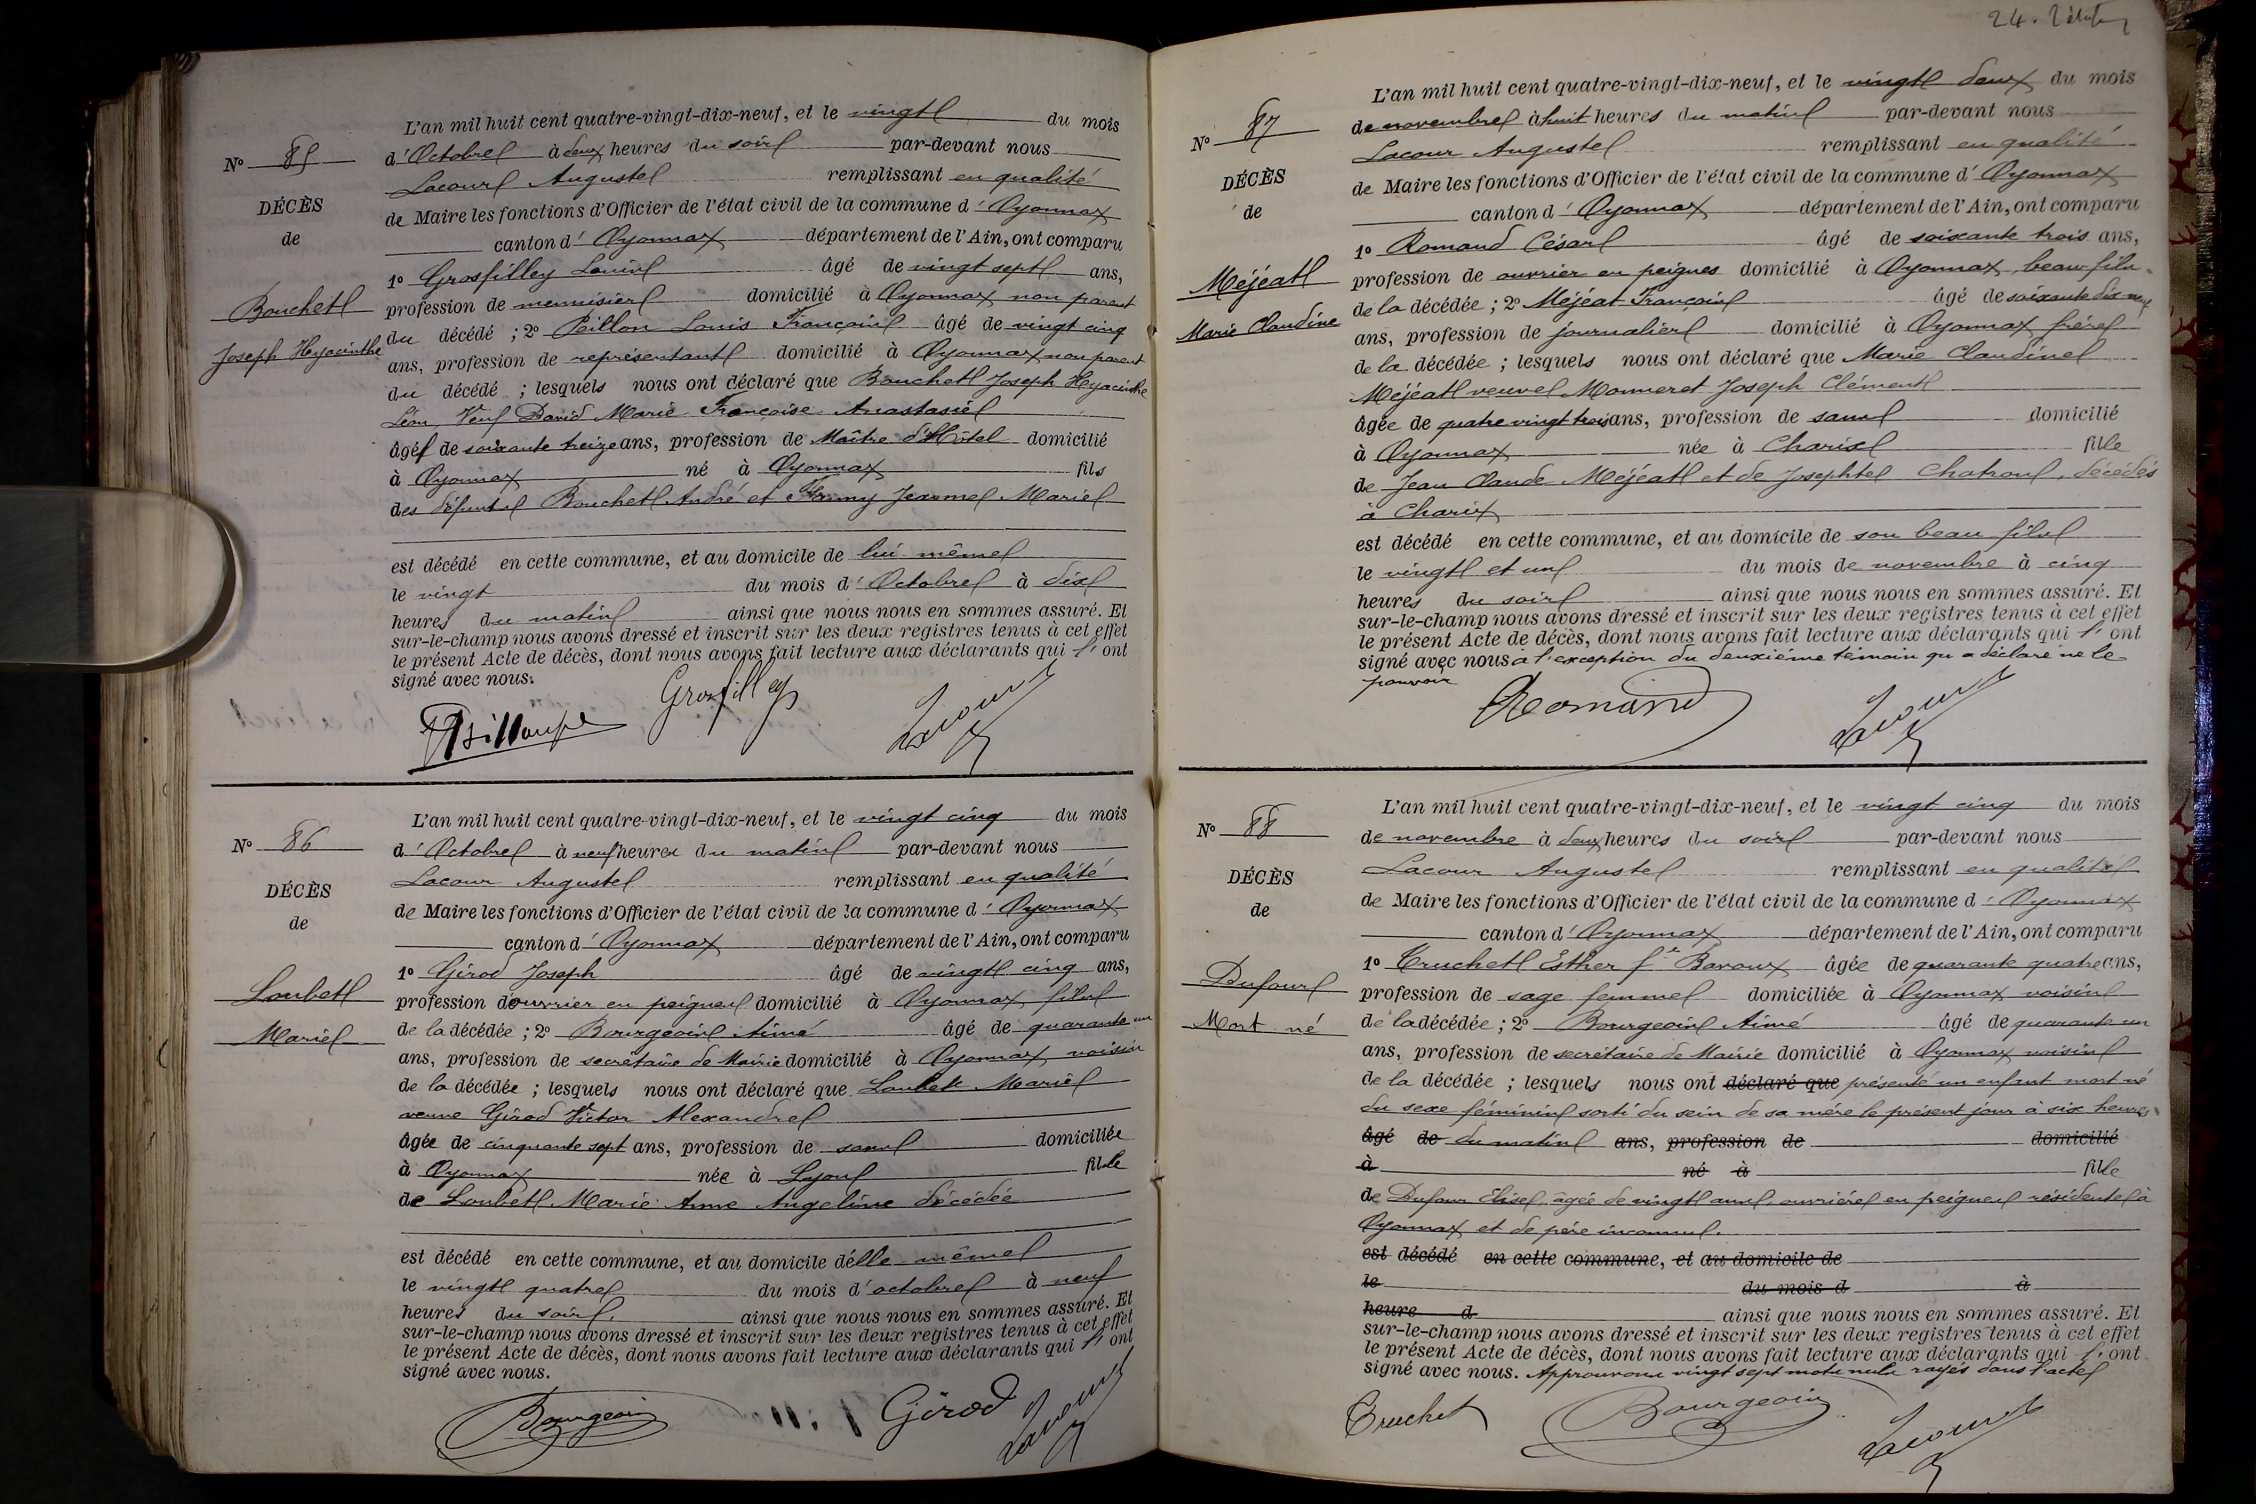 N° 85
DÉCÈS
de
Bouchet
Joseph Hyacinthe
L'an mil huit cent quatre-vingt-dix-neuf, et le vingt du mois
d'Octobre à deux heures du soir par-devant nous
Lacour Auguste remplissant en qualité
de Maire les fonctions d'Officier de l'état civil de la commune d'Oyonnax
canton d'Oyonnax département de l'Ain, ont comparu
1° Grosfilley Louis âgé de vingt sept ans,
profession de menuisier domicilié à Oyonnax non parent
du décédé ; 2° Peillon Louis François âgé de vingt cinq
ans, profession de représentant domicilié à Oyonnax non parent
du décédé ; lesquels nous ont déclaré que Bouchet Joseph Hyacinthe
Léon, Veuf David Marie Françoise Anastasie
âgé de soixante treize ans, profession de Maître d'Hôtel domicilié
à Oyonnax né à Oyonnax fils
des défunts Bouchet André et Jeanne Marie
est décédé en cette commune, et au domicile de lui-même
le vingt du mois d'Octobre à dix
heures du matin ainsi que nous nous en sommes assuré. Et
sur-le-champ nous avons dressé et inscrit sur les deux registres tenus à cet effet
le présent Acte de décès, dont nous avons fait lecture aux déclarants qui l'ont
signé avec nous.
Grosfilley
Lacour
N° 86
DÉCÈS
de
Loubet
Marie
L'an mil huit cent quatre-vingt-dix-neuf, et le vingt cinq du mois
d'Octobre à neuf heures du matin par-devant nous
Lacour Auguste remplissant en qualité
de Maire les fonctions d'Officier de l'état civil de la commune d'Oyonnax
canton d'Oyonnax département de l'Ain, ont comparu
1° Girod Joseph âgé de vingt cinq ans,
profession d'ouvrier en peignes domicilié à Oyonnax, fils
de la décédée ; 2° Bourgeois Aimé âgé de quarante un
ans, profession de secrétaire de Mairie domicilié à Oyonnax, voisin
de la décédée ; lesquels nous ont déclaré que Loubet Marie
veuve Girod Victor Alexandre
âgée de cinquante sept ans, profession de sans domiciliée
à Oyonnax née à Lyon fille
de Loubet Marie Anne Angeline décédée
est décédé en cette commune, et au domicile d'elle-même
le vingt quatre du mois d'octobre à neuf
heures du soir. ainsi que nous nous en sommes assuré. Et
sur-le-champ nous avons dressé et inscrit sur les deux registres tenus à cet effet
le présent Acte de décès, dont nous avons fait lecture aux déclarants qui l'ont
signé avec nous.
Bourgeois Girod Lacour
24.
N° 87
DÉCÈS
de
Méjéat
Marie Claudine
L'an mil huit cent quatre-vingt-dix-neuf, et le vingt deux du mois
de novembre à huit heures du matin par-devant nous
Lacour Auguste remplissant en qualité
de Maire les fonctions d'Officier de l'état civil de la commune d'Oyonnax
canton d'Oyonnax département de l'Ain, ont comparu
1° Romand César âgé de soixante trois ans,
profession de ouvrier en peignes domicilié à Oyonnax, beau-fils
de la décédée ; 2° Méjéat François âgé de soixante dix neuf
ans, profession de journalier domicilié à Oyonnax frère
de la décédée ; lesquels nous ont déclaré que Marie Claudine
Méjéat veuve Monneret Joseph Clément
âgée de quatre vingt trois ans, profession de sans domicilié
à Oyonnax née à Charix fille
de Jean Claude Méjéat et de Josephte Chatron, décédés
à Charix
est décédé en cette commune, et au domicile de son beau fils
le vingt et un du mois de novembre à cinq
heures du soir ainsi que nous nous en sommes assuré. Et
sur-le-champ nous avons dressé et inscrit sur les deux registres tenus à cet effet
le présent Acte de décès, dont nous avons fait lecture aux déclarants qui l'ont
signé avec nous à l'exception du deuxième témoin qu a déclaré ne le
pouvoir
Romand
Lacour
N° 88
DÉCÈS
de
Dufour
Mort né
L'an mil huit cent quatre-vingt-dix-neuf, et le vingt cinq du mois
de novembre à deux heures du soir par-devant nous
Lacour Auguste remplissant en qualité
de Maire les fonctions d'Officier de l'état civil de la commune d'Oyonnax
canton d'Oyonnax département de l'Ain, ont comparu
1° Cruchet Esther fe Baroux âgée de quarante quatre ans,
profession de sage femme domiciliée à Oyonnax voisine
de la décédée ; 2° Bourgeois Aimé âgé de quarante un
ans, profession de secrétaire de Mairie domicilié à Oyonnax voisin
de la décédée ; lesquels nous ont déclaré que présenté un enfant mort né
du sexe féminin sorti du sein de sa mère le présent jour à six heures
âgé de du matin ans, profession de domicilié
à né à fille
de Dufour Elise, âgée de vingt ans, ouvrière en peignes résidente à
Oyonnax et de père inconnu.
est décédé en cette commune, et au domicile de
le du mois d à
heure d ainsi que nous nous en sommes assuré. Et
sur-le-champ nous avons dressé et inscrit sur les deux registres tenus à cet effet
le présent Acte de décès, dont nous avons fait lecture aux déclarants qui l'ont
signé avec nous. Approuvons vingt sept mots nuls rayés dans l'acte
Cruchet Bourgeois Lacour